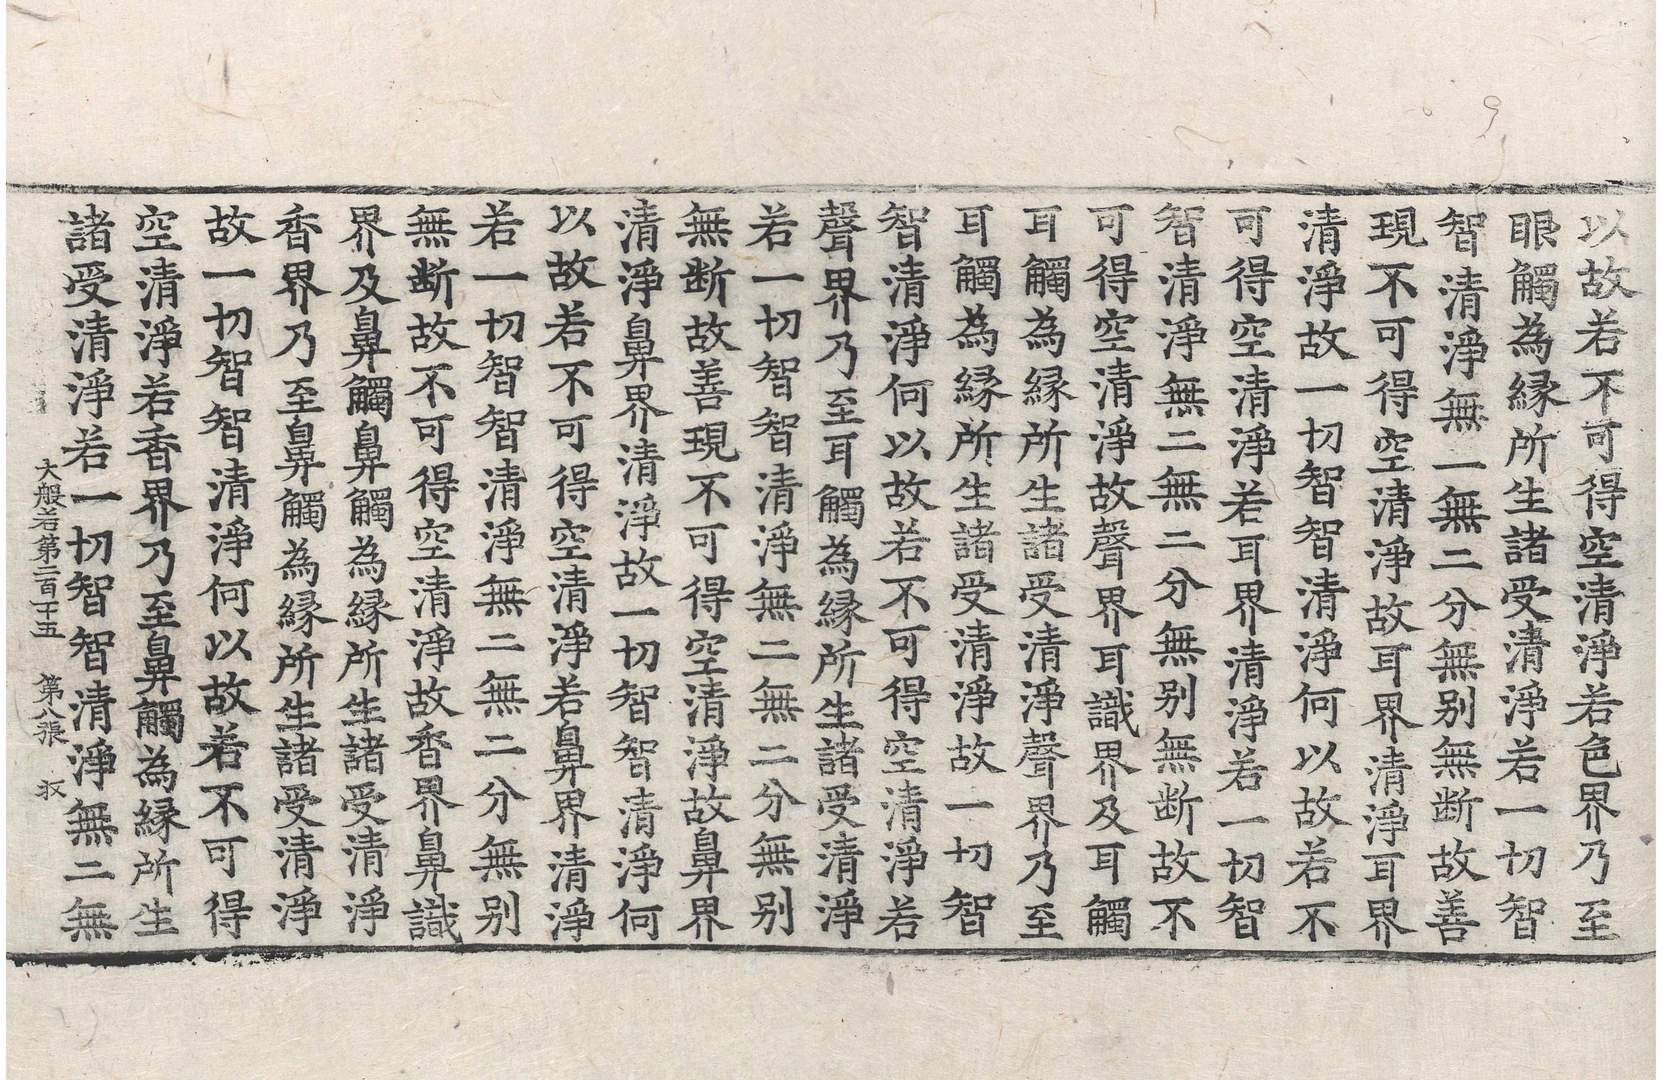 以故若不可得空清淨若色界乃至
眼觸為縁所生諸受清淨若一切智
智清淨無一無二分無别無断故善
現不可得空清淨故耳界清淨耳界
清淨故一切智智清淨何以故若不
可得空清淨若耳界清淨若一切智
智清淨無二無二分無别無断故不
可得空清淨故聲界耳識界及耳觸
耳觸為縁所生諸受清淨聲界乃至
耳觸為縁所生諸受清淨故一切智
智清淨何以故若不可得空清淨若
聲界乃至耳觸為縁所生諸受清淨
若一切智智清淨無二無二分無别
無断故善現不可得空清淨故鼻界
清淨鼻界清淨故一切智智清淨何
以故若不可得空清淨若鼻界清淨
若一切智智清淨無二無二分無别
無断故不可得空清淨故香界鼻識
界及鼻觸鼻觸為縁所生諸受清淨
香界乃至鼻觸為縁所生諸受清淨
故一切智智清淨何以故若不可得
空清淨若香界乃至鼻觸為縁所生
諸受清淨若一切智智清淨無二無
大般若第二百十五 第八張